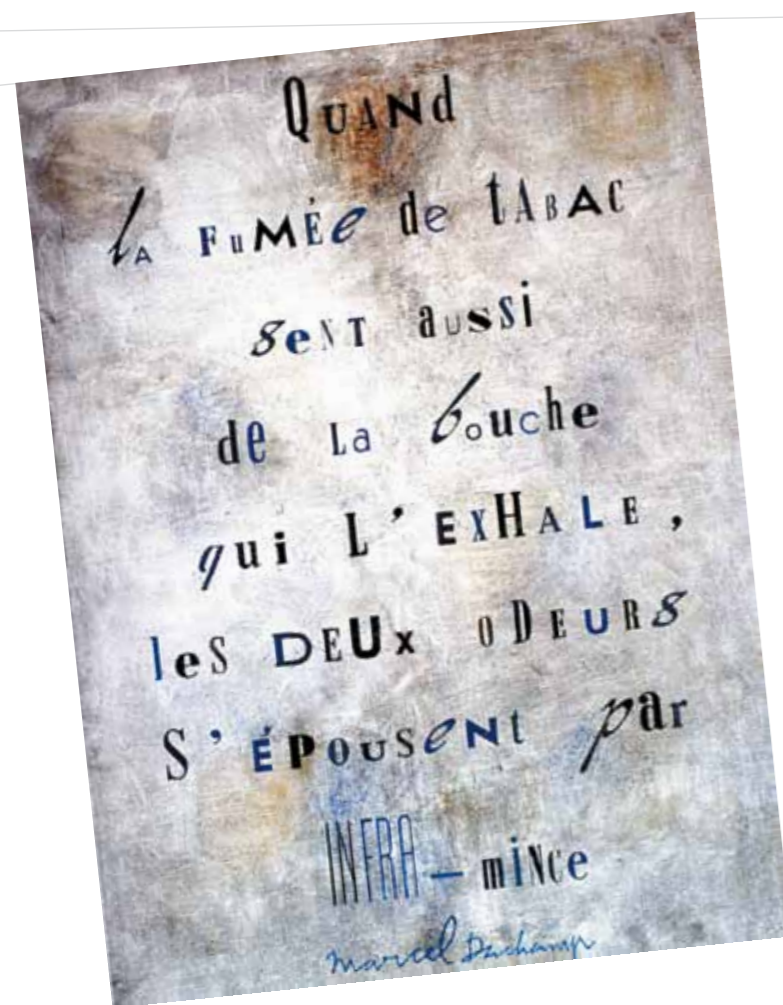 QUANd
lA FuMÉe de tABAC
seNT aUssi
de La bouche
qui L'EXHALE,
leS DEUx ODEURs
S'ÉPOUSeNt par
INFRA-miNce
marcel Duchamp